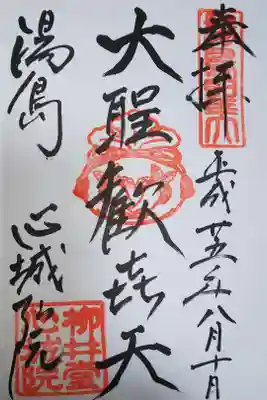 奉拝
平成廿五年八月十日
大聖歓喜天
湯島
心城院
柳井堂
心城院